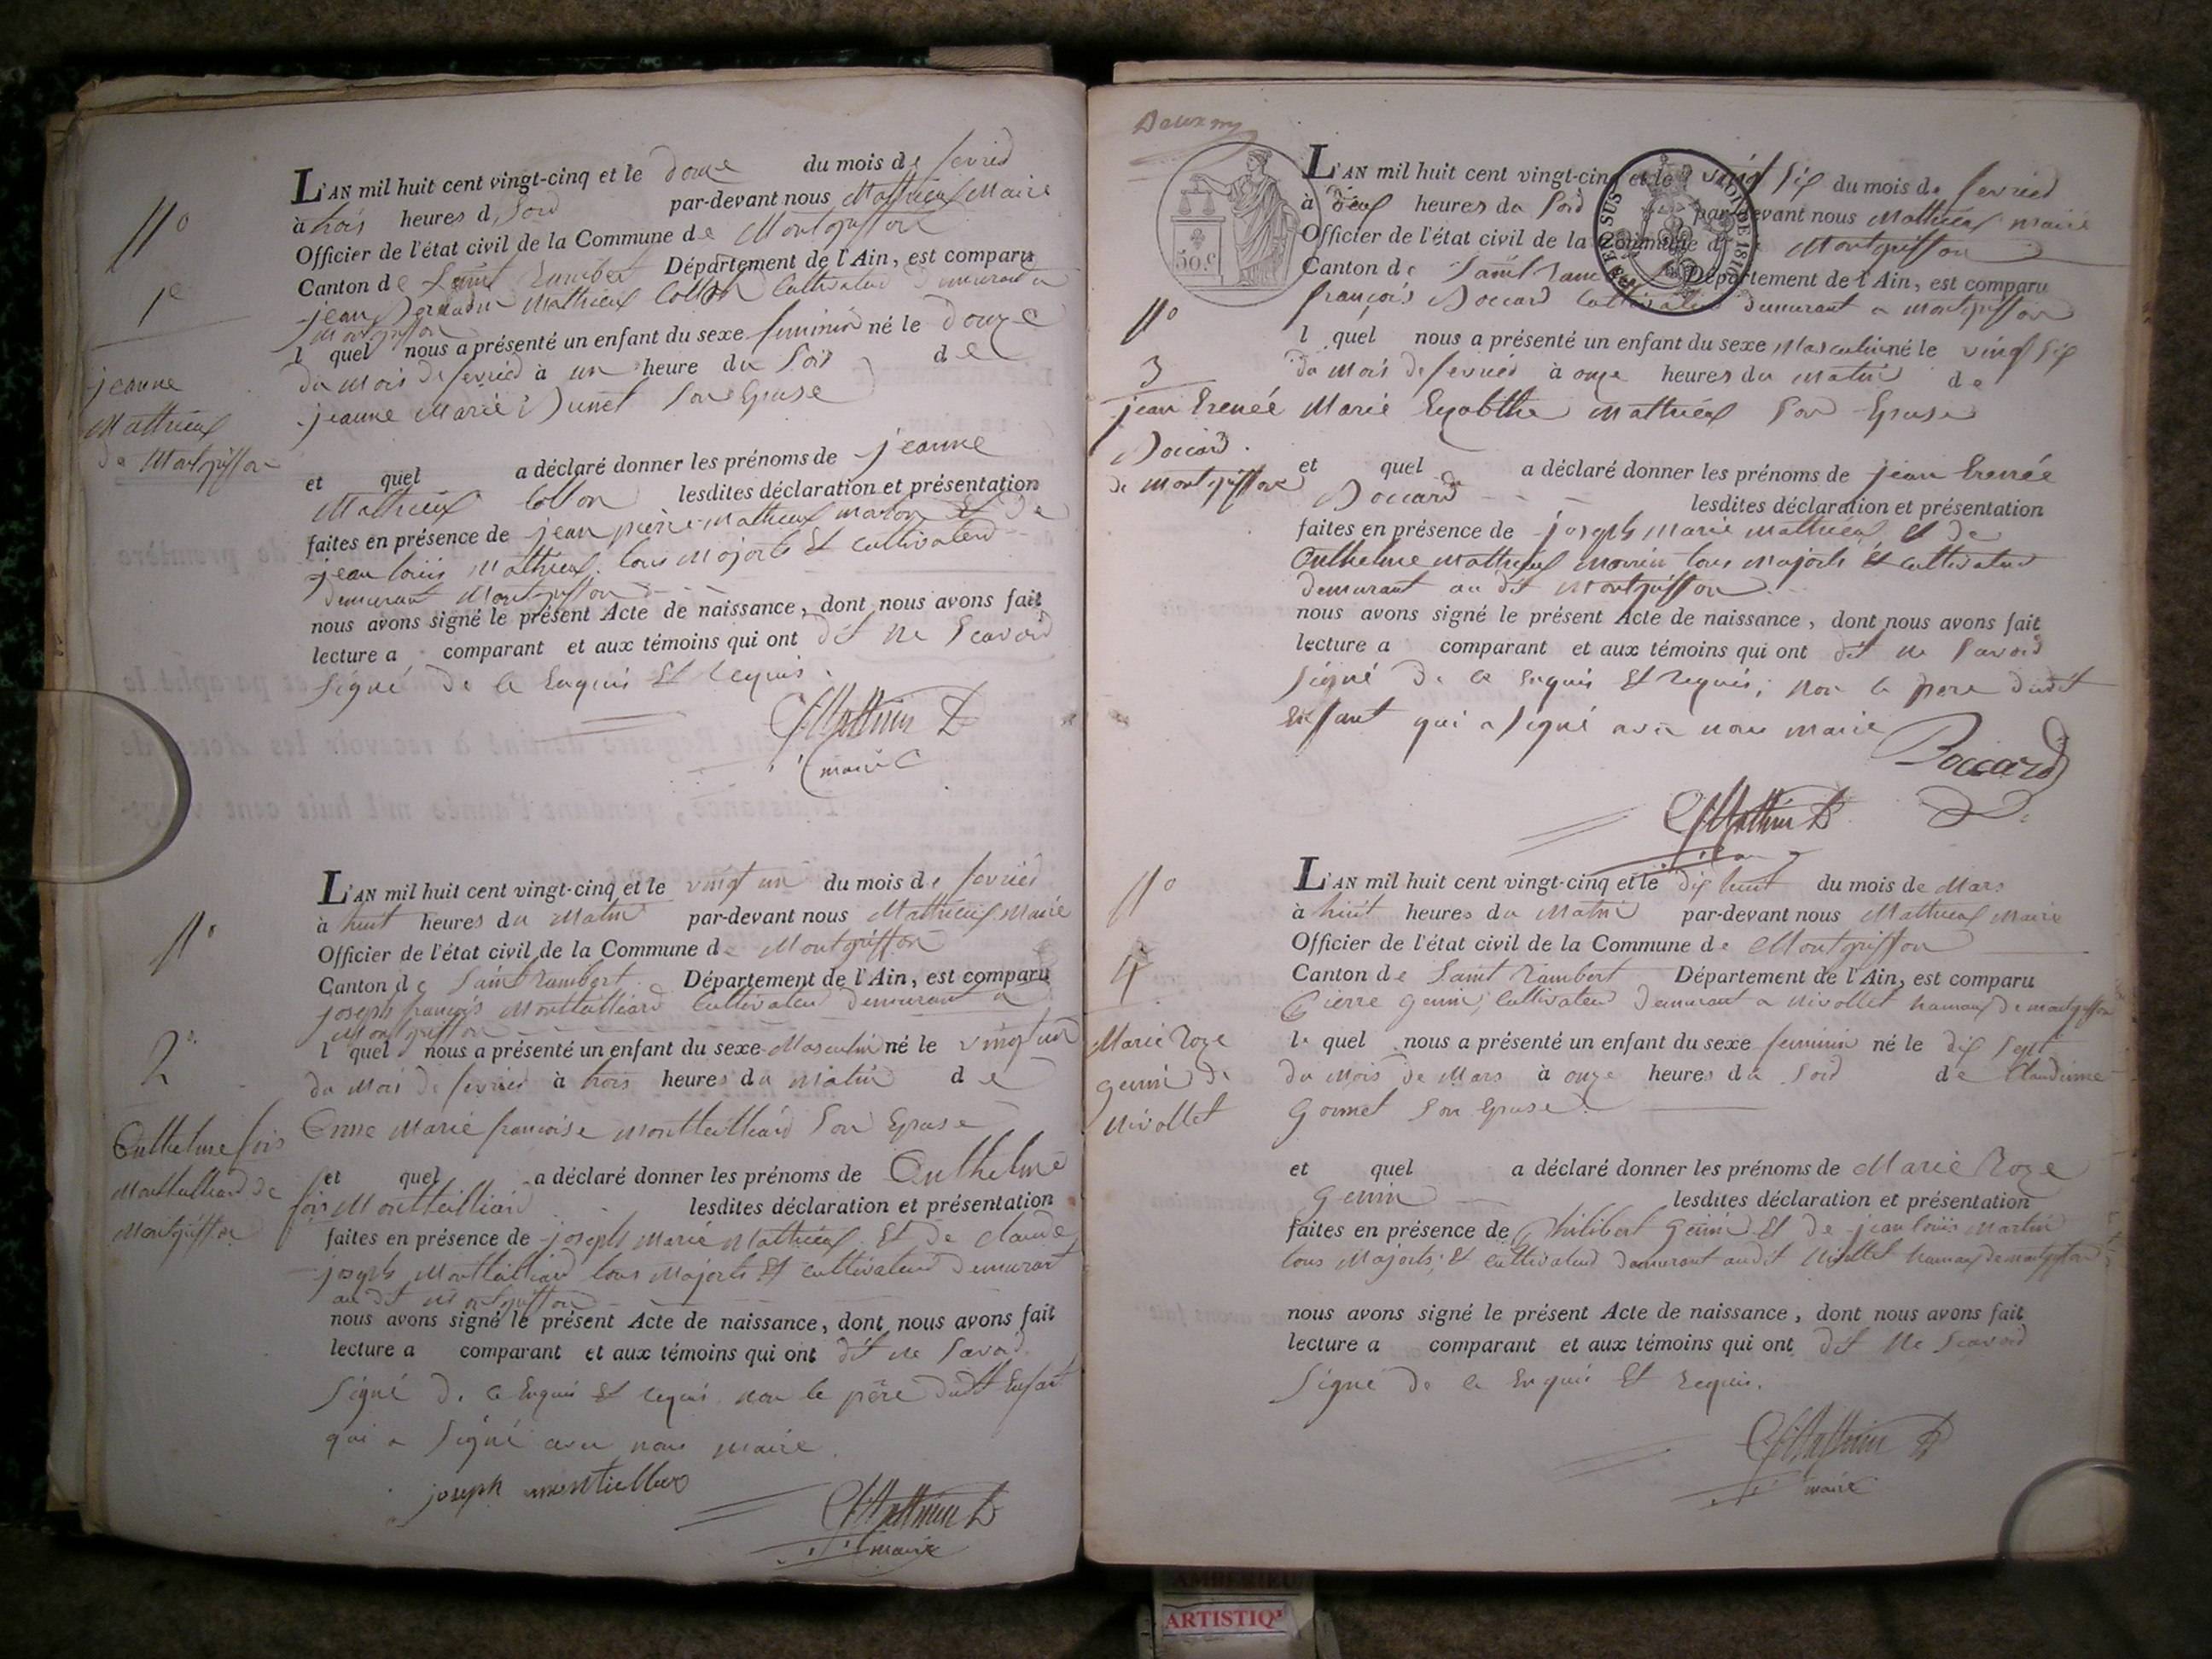 N°
1e
jeanne
Mathieux
de Montgriffon
L'AN mil huit cent vingt-cinq et le douze du mois de fevrier
à trois heures du soir par-devant nous Mathieux Maire
Officier de l'état civil de la Commune de Montgriffon
Canton de Saint Rambert Département de l'Ain, est comparu
jean Mathieux Collon Cultivateur demeurant a
Montgriffon
l quel nous a présenté un enfant du sexe feminin né le douze
du mois de fevrier à un heure du soir de
jeanne Marie son Epouse
et quel a déclaré donner les prénoms de jeanne
Mathieux Collon lesdites déclaration et présentation
faites en présence de jean pierre Mathieux et de
jean louis Mathieux tous Majorts et cultivateur
demeurant Montgriffon
nous avons signé le présent Acte de naissance, dont nous avons fait
lecture a comparant et aux témoins qui ont dit ne scavoir
signé de ce Enquis Et requis.
Mathieux
maire
N°
2°
Enthelme fois
Monttulliard de
Montgriffon
L'AN mil huit cent vingt-cinq et le vingt un du mois de fevrier
à huit heures du Matin par-devant nous Mathieux Maire
Officier de l'état civil de la Commune de Montgriffon
Canton de Saint Rambert Département de l'Ain, est comparu
joseph françois Monttulliard Cultivateur demeurant a
Montgriffon
l quel nous a présenté un enfant du sexe Masculin né le vingt un
du mois de fevrier à trois heures du matin de
Enne Marie françoise Monttulliard son Epouse
et quel a déclaré donner les prénoms de Enthelme
fois Monttulliard lesdites déclaration et présentation
faites en présence de joseph Marie Mathieux Et de claude
joseph Monttulliard tous Majorts Et cultivateur demeurant
au dit Montgriffon
nous avons signé le présent Acte de naissance, dont nous avons fait
lecture a comparant et aux témoins qui ont dit ne savoir
signé de ce Enquis Et requis non le père dudit Enfant
qui a signé avec nous maire.
joseph
Mathieux
maire
50.c
N°
3
jean Ereneé
Boccard
de montgriffon
L'AN mil huit cent vingt-cinq et le vingt six du mois de fevrier
à deux heures du soir par-devant nous Mathieux maire
Officier de l'état civil de la Commune de Montgriffon
Canton de Saint Rambert Département de l'Ain, est comparu
françois Boccard Cultivateur demeurant a montgriffon
l quel nous a présenté un enfant du sexe Masculin né le vingt six
du mois de fevrier à onze heures du matin de
Marie Mathieux son Epouse
et quel a déclaré donner les prénoms de jean Ereneé
Boccard lesdites déclaration et présentation
faites en présence de joseph Marie Mathieux et de
Enthelme Mathieux tous Majorts Et cultivateur
demeurant au dit Montgriffon
nous avons signé le présent Acte de naissance, dont nous avons fait
lecture a comparant et aux témoins qui ont dit ne savoir
signé de ce enquis Et requis; non le pere dudit
Enfant qui a signé avec nous maire
Boccard
Mathieux
N°
4
Marie Roze
genin de
Nivollet
L'AN mil huit cent vingt-cinq et le dix huit du mois de Mars
à huit heures du Matin par-devant nous Mathieux Maire
Officier de l'état civil de la Commune de Montgriffon
Canton de Saint Rambert Département de l'Ain, est comparu
Pierre genin, Cultivateur demeurant a Nivollet hamaux de montgriffon
le quel nous a présenté un enfant du sexe feminin né le dix sept
du Mois de Mars à onze heures du soir de Claudinne
son Epouse
et quel a déclaré donner les prénoms de Marie Roze
genin lesdites déclaration et présentation
faites en présence de Philibert genin et de jean louis Martin
tous Majorts, Et cultivateur demeurant audit Nivollet hamaux de montgriffon
nous avons signé le présent Acte de naissance, dont nous avons fait
lecture a comparant et aux témoins qui ont dit Ne scavoir
signé de ce Enquis Et requis.
Mathieux
maire
ARTISTIQ